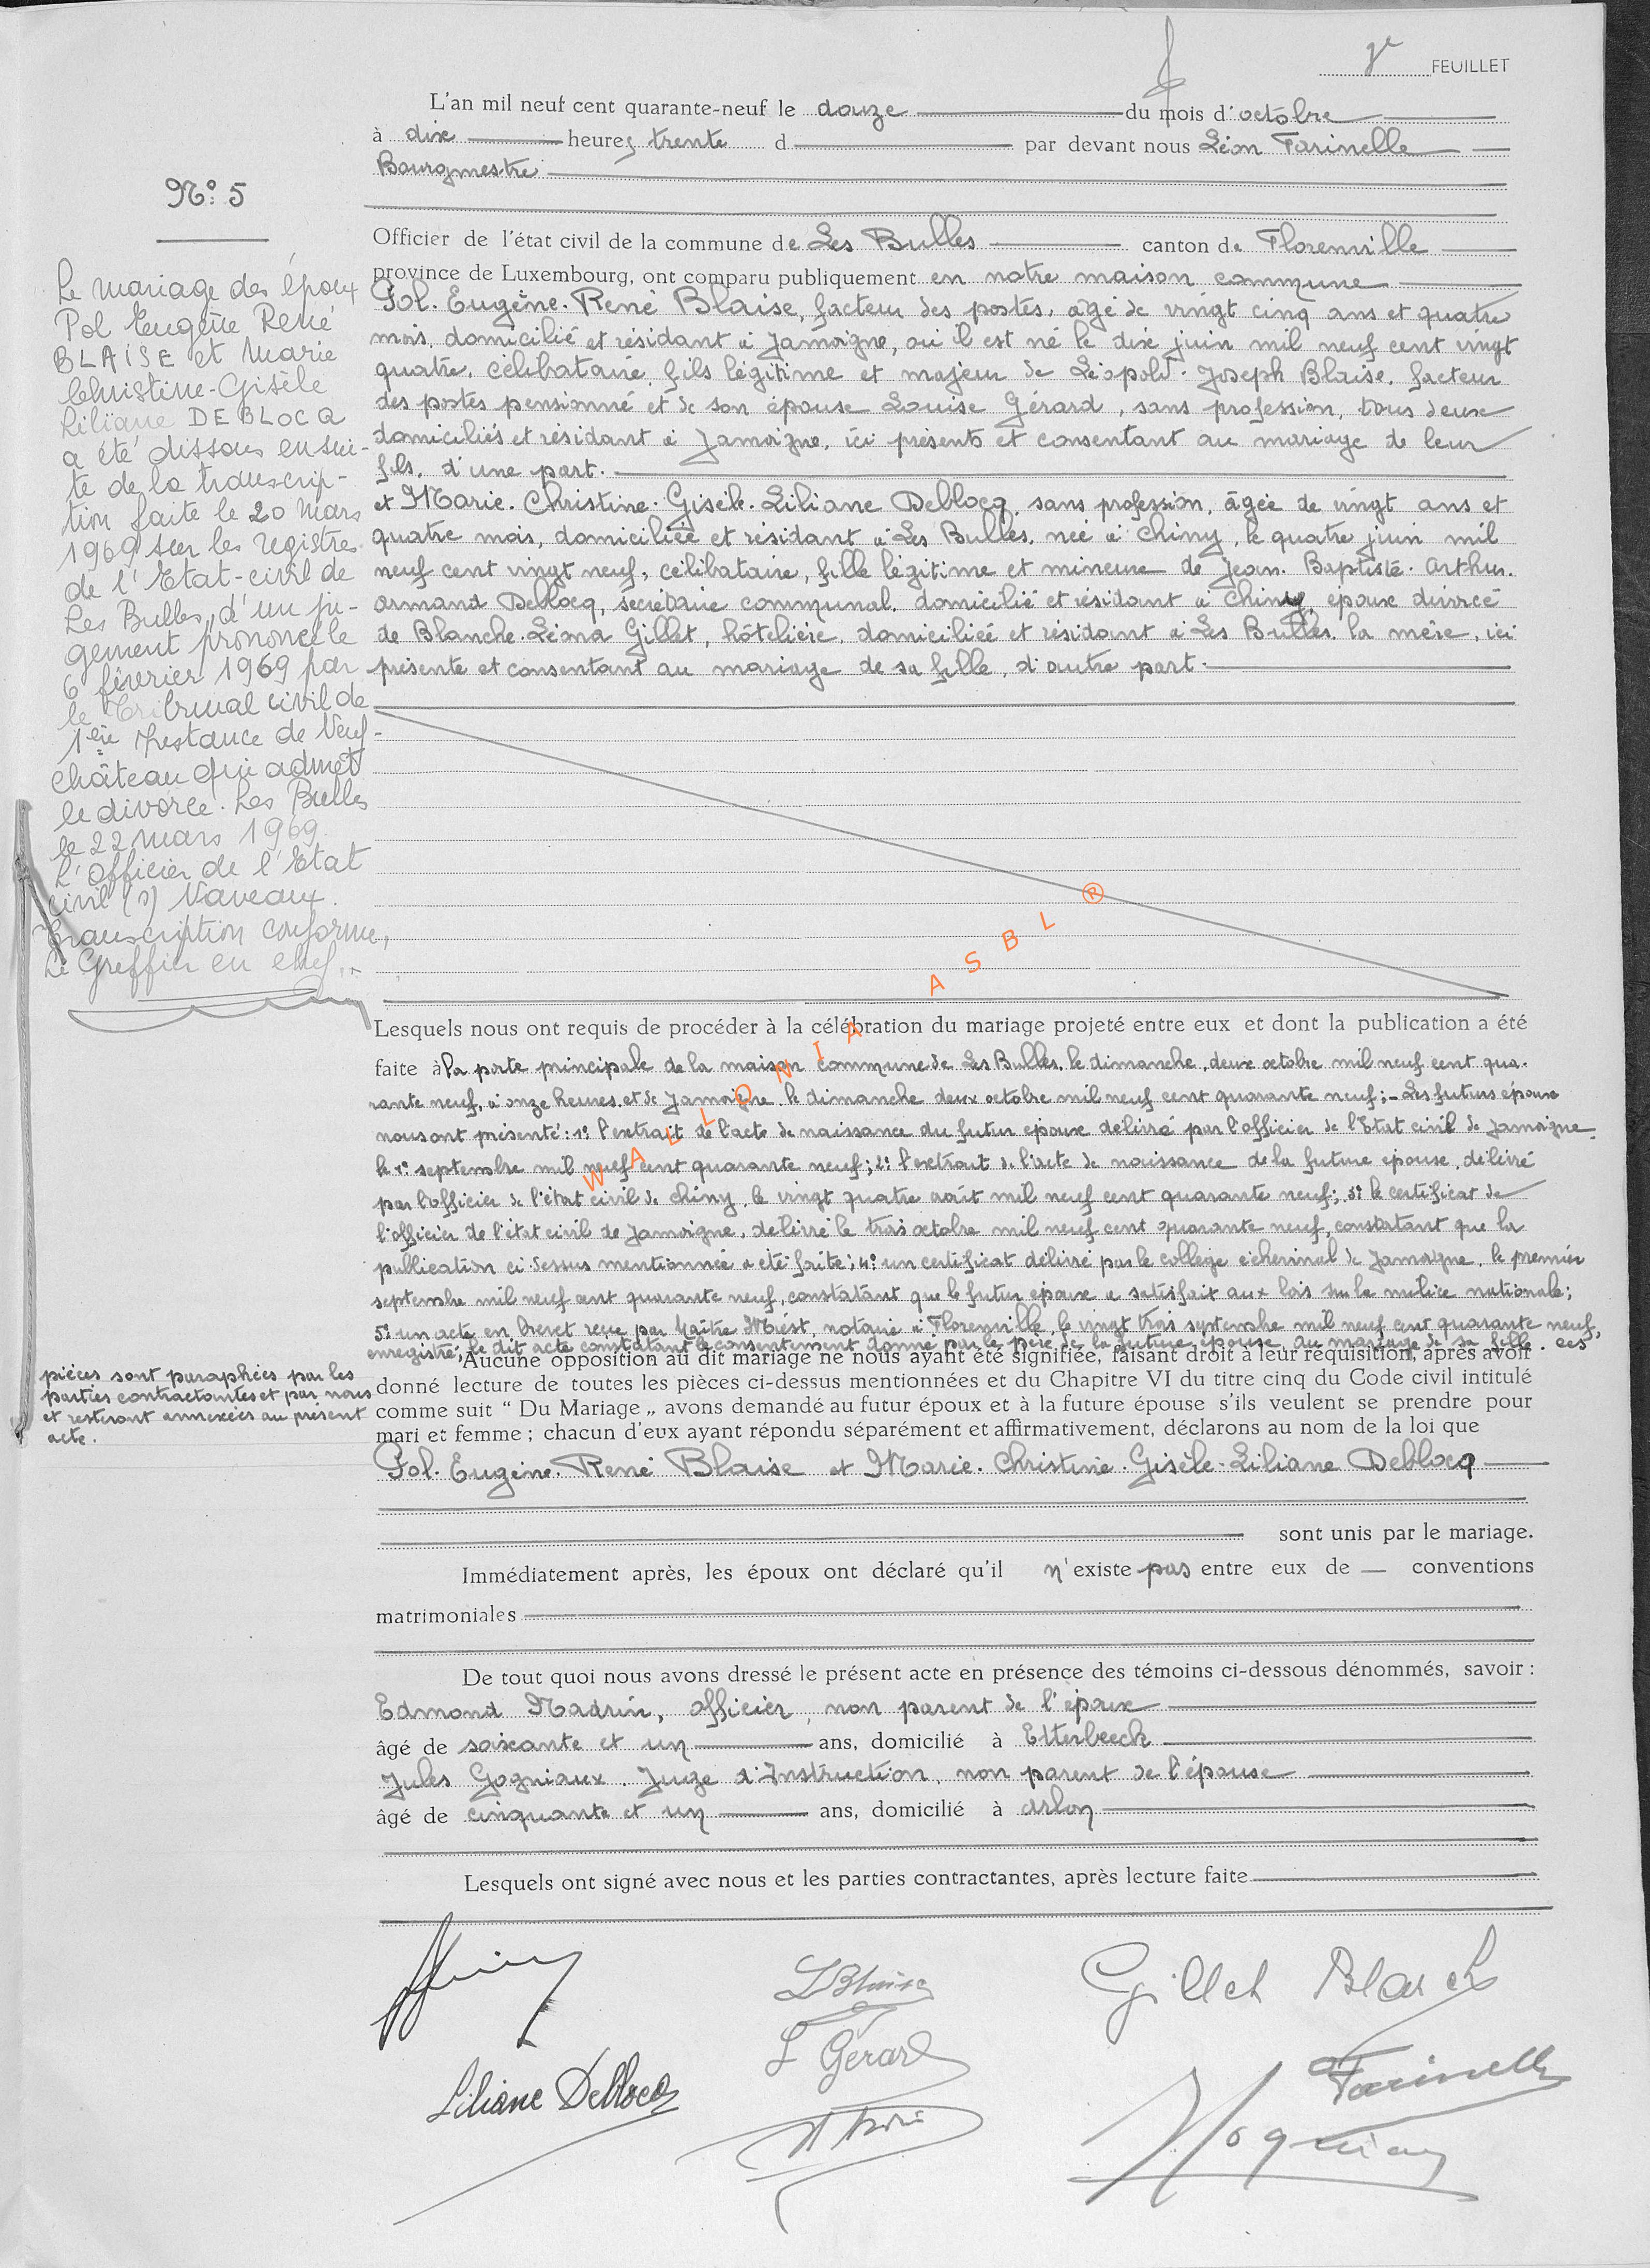 FEUILLET
L'an mil neuf cent quarante-neuf le douze du mois d'octobre
à dix heures trente d par devant nous Léon Farinelle
Bourgmestre
N° 5
Officier de l'état civil de la commune de Les Bulles canton de Florenville
province de Luxembourg, ont comparu publiquement en notre maison commune
Pol. Eugène. René Blaise, facteur des postes, âgé de vingt cinq ans et quatre
mois, domicilié et résidant à Jamoigne, où il est né le dix juin mil neuf cent vingt
quatre, célibataire, fils légitime et majeur de Léopold. Joseph Blaise, facteur
des postes pensionné et de son épouse Louise Gérard, sans profession, tous deux
domiciliés et résidant à Jamoigne, ici présents et consentant au mariage de leur
fils, d'une part.
et Marie. Christine. Gisèle. Liliane Deblocq, sans profession, âgée de vingt ans et
quatre mois, domiciliée et résidant à Les Bulles, née à Chiny, le quatre juin mil
neuf cent vingt neuf, célibataire, fille légitime et mineure de Jean. Baptiste. Arthur.
Armand Deblocq, secrétaire communal, domicilié et résidant à Chiny, époux divorcé
de Blanche. Léona Gillet, hôtelière, domiciliée et résidant à Les Bulles, la mère, ici
présente et consentant au mariage de sa fille, d'autre part.
Le mariage des époux
Pol Eugène René
BLAISE et Marie
Christine-Gisèle
Liliane DEBLOCQ
a été dissous ensui-
te de la transcrip-
tion faite le 20 mars
1969 sur les registres
de l'Etat-civil de
Les Bulles, d'un ju-
gement prononcé le
6 février 1969 par
le Tribunal civil de
1ère Instance de Neuf-
château qui admet
le divorce. Les Bulles
le 22 mars 1969.
L'Officier de l'Etat
civil (s) Naveaux.
Transcription conforme,
Le Greffier en chef,
WALLONIA ASBL ®
Lesquels nous ont requis de procéder à la célébration du mariage projeté entre eux et dont la publication a été
faite à la porte principale de la maison commune de Les Bulles, le dimanche, deux octobre mil neuf cent qua-
rante neuf, à onze heures et de Jamoigne le dimanche deux octobre mil neuf cent quarante neuf ;- Les futurs époux
nous ont présenté : 1° l'extrait de l'acte de naissance du futur époux délivré par l'officier de l'Etat civil de Jamoigne
le 1° septembre mil neuf cent quarante neuf ; 2° l'extrait de l'acte de naissance de la future épouse, délivré
par l'officier de l'état civil de Chiny, le vingt quatre août mil neuf cent quarante neuf ; 3° le certificat de
l'officier de l'état civil de Jamoigne, délivré le trois octobre mil neuf cent quarante neuf, constatant que la
publication ci dessus mentionnée a été faite ; 4° un certificat délivré par le collège échevinal de Jamoigne, le premier
septembre mil neuf cent quarante neuf, constatant que le futur époux a satisfait aux lois sur la milice nationale ;
5° un acte en brevet reçu par Maître notaire à Florenville, le vingt trois septembre mil neuf cent quarante neuf,
enregistré, le dit acte constatant le consentement donné par le père de la future épouse au mariage de sa fille. Ces
pièces sont paraphées par les
parties contractantes et par nous
et resteront annexées au présent
acte.
Aucune opposition au dit mariage ne nous ayant été signifiée, faisant droit à leur réquisition, après avoir
donné lecture de toutes les pièces ci-dessus mentionnées et du Chapitre VI du titre cinq du Code civil intitulé
comme suit “ Du Mariage „ avons demandé au futur époux et à la future épouse s'ils veulent se prendre pour
mari et femme ; chacun d'eux ayant répondu séparément et affirmativement, déclarons au nom de la loi que
Pol. Eugène. René Blaise et Marie. Christine. Gisèle. Liliane Deblocq
sont unis par le mariage.
Immédiatement après, les époux ont déclaré qu'il n'existe pas entre eux de conventions
matrimoniales
De tout quoi nous avons dressé le présent acte en présence des témoins ci-dessous dénommés, savoir :
Edmond Madrin, officier, non parent de l'époux
âgé de soixante et un ans, domicilié à Etterbeeck
Jules Gogniaux. Juge d'Instruction, non parent de l'épouse
âgé de cinquante et un ans, domicilié à Arlon
Lesquels ont signé avec nous et les parties contractantes, après lecture faite
LBlaise
Gillet Blanch
L Gérard
Farinelle
Liliane Deblocq